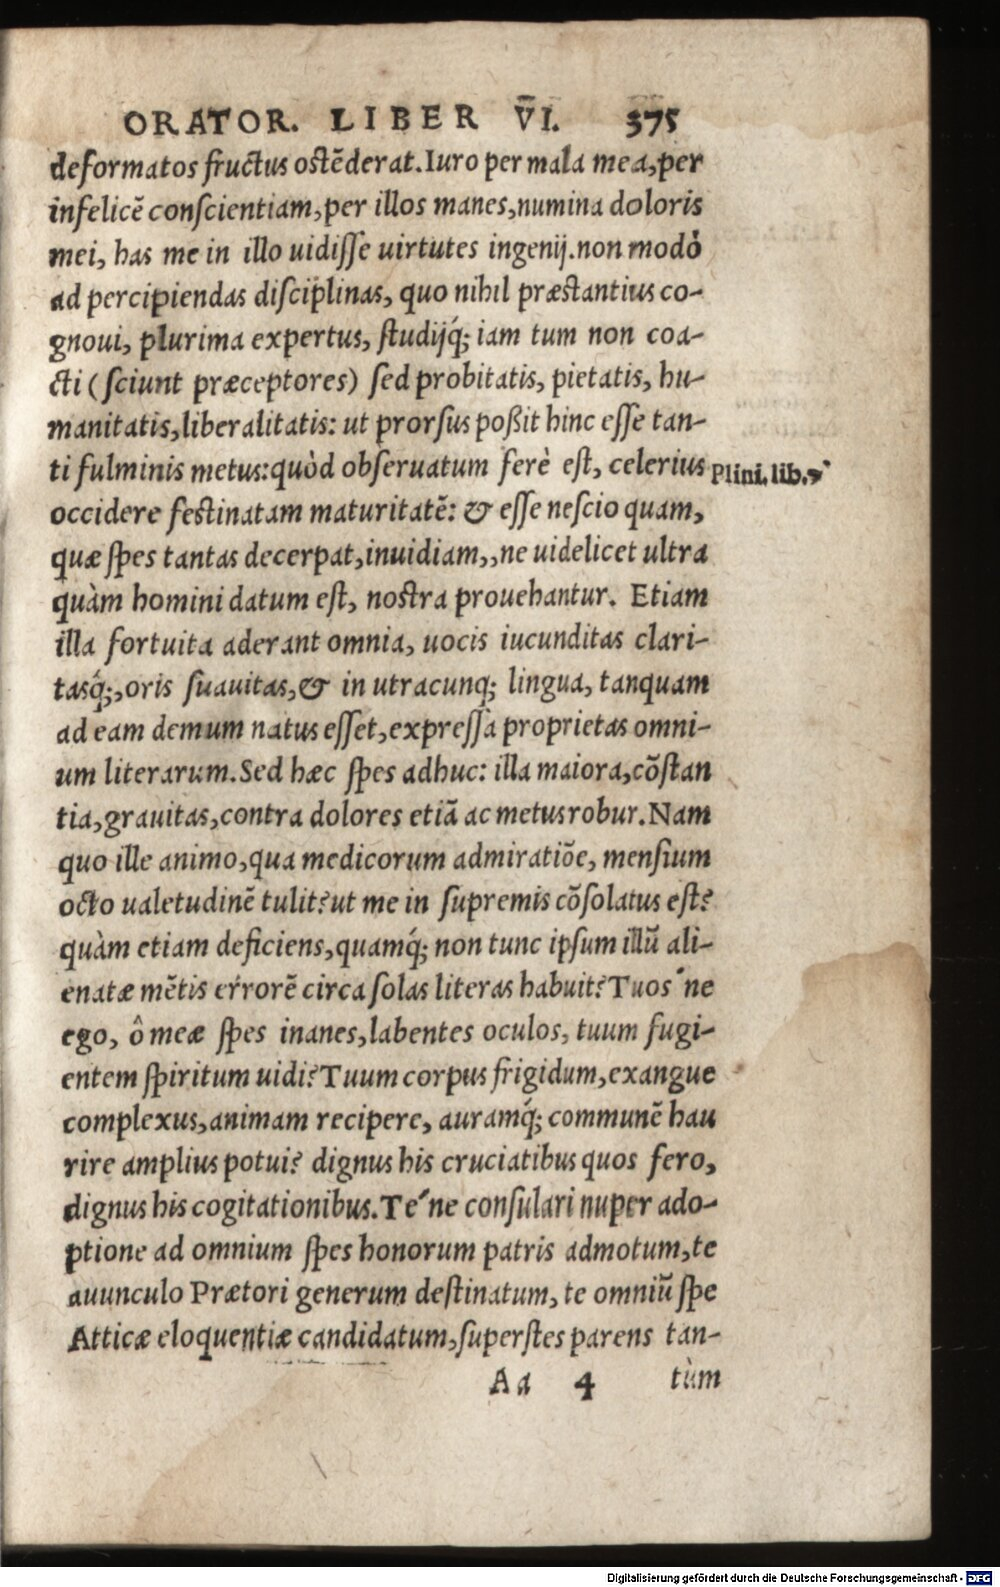 ORATOR. LIBER V̅I. 375
deformatos fructus ostēderat. Iuro per mala mea, per
infelicē conscientiam, per illos manes, numina doloris
mei, has me in illo uidisse uirtutes ingenij. non modò
ad percipiendas disciplinas, quo nihil præstantius co-
gnoui, plurima expertus, studijq́; iam tum non coa-
cti (sciunt præceptores) sed probitatis, pietatis, hu-
manitatis, liberalitatis: ut prorsus poßit hinc esse tan-
ti fulminis metus: quòd obseruatum ferè est, celerius Plini. lib. 7
occidere festinatam maturitatē: & esse nescio quam,
quæ spes tantas decerpat, inuidiam,, ne uidelicet ultra
quàm homini datum est, nostra prouehantur. Etiam
illa fortuita aderant omnia, uocis iucunditas clari-
tasq́;, oris suauitas, & in utracunq; lingua, tanquam
ad eam demum natus esset, expressa proprietas omni-
um literarum. Sed hæc spes adhuc: illa maiora, cōstan
tia, grauitas, contra dolores etiā ac metus robur. Nam
quo ille animo, qua medicorum admiratiōe, mensium
octo ualetudinē tulit? ut me in supremis cōsolatus est?
quàm etiam deficiens, quamq́; non tunc ipsum illū ali-
enatæ mētis errorē circa solas literas habuit? Tuos´ne
ego, ô meæ spes inanes, labentes oculos, tuum fugi-
entem spiritum uidi? Tuum corpus frigidum, exangue
complexus, animam recipere, auramq́; communē hau
rire amplius potui? dignus his cruciatibus quos fero,
dignus his cogitationibus. Te´ne consulari nuper ado-
ptione ad omnium spes honorum patris admotum, te
auunculo Prætori generum destinatum, te omniū spe
Atticæ eloquentiæ candidatum, superstes parens tan-
Aa 4 tùm
Digitalisierung gefördert durch die Deutsche Forschungsgemeinschaft - DFG